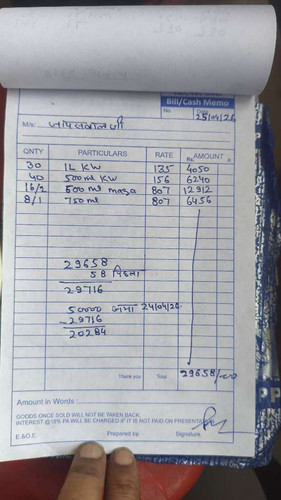 Bill/Cash Memo
No. Date 25/04/26
M/s.
QNTY PARTICULARS RATE Rs. AMOUNT P.
30 1L KW 135 4050
40 500ml KW 156 6240
16/2 600 ml maza 807 12912
8/1 750ml 807 6456
29658
58 पिछला
29716
50000 जमा 24/04/26
-29716
20284
Thank you Total 29658/-00
Amount in Words :
GOODS ONCE SOLD WILL NOT BE TAKEN BACK.
INTEREST @18% PA WILL BE CHARGED IF IT IS NOT PAID ON PRESENTATION
E.&O.E. Prepared by Signature